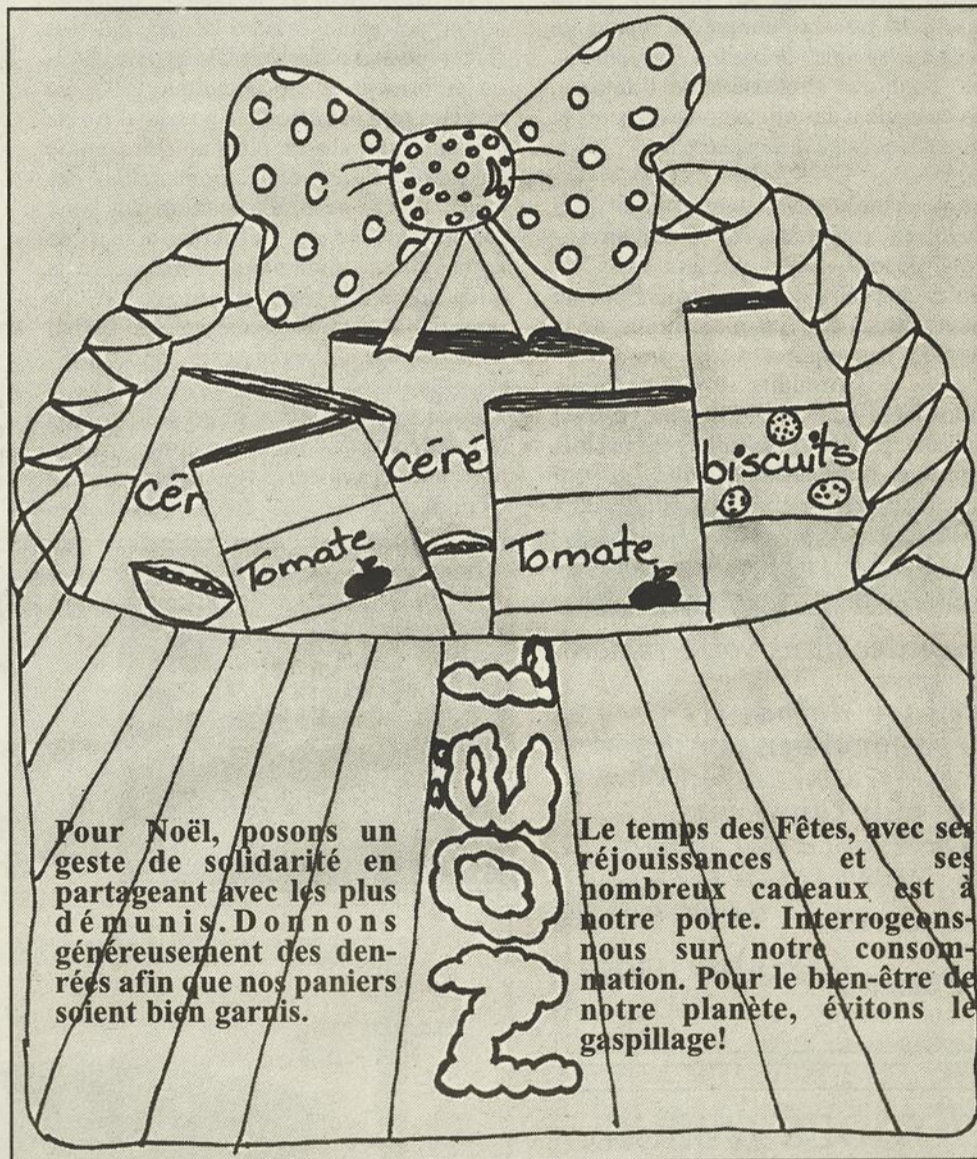 céré
biscuits
cér
Tomate
Tomate
NOËL
Pour Noël, posons un
geste de solidarité en
partageant avec les plus
démunis. Donnons
généreusement des den-
rées afin que nos paniers
soient bien garnis.
Le temps des Fêtes, avec ses
réjouissances et ses
nombreux cadeaux est à
notre porte. Interrogeons-
nous sur notre consom-
mation. Pour le bien-être de
notre planète, évitons le
gaspillage!